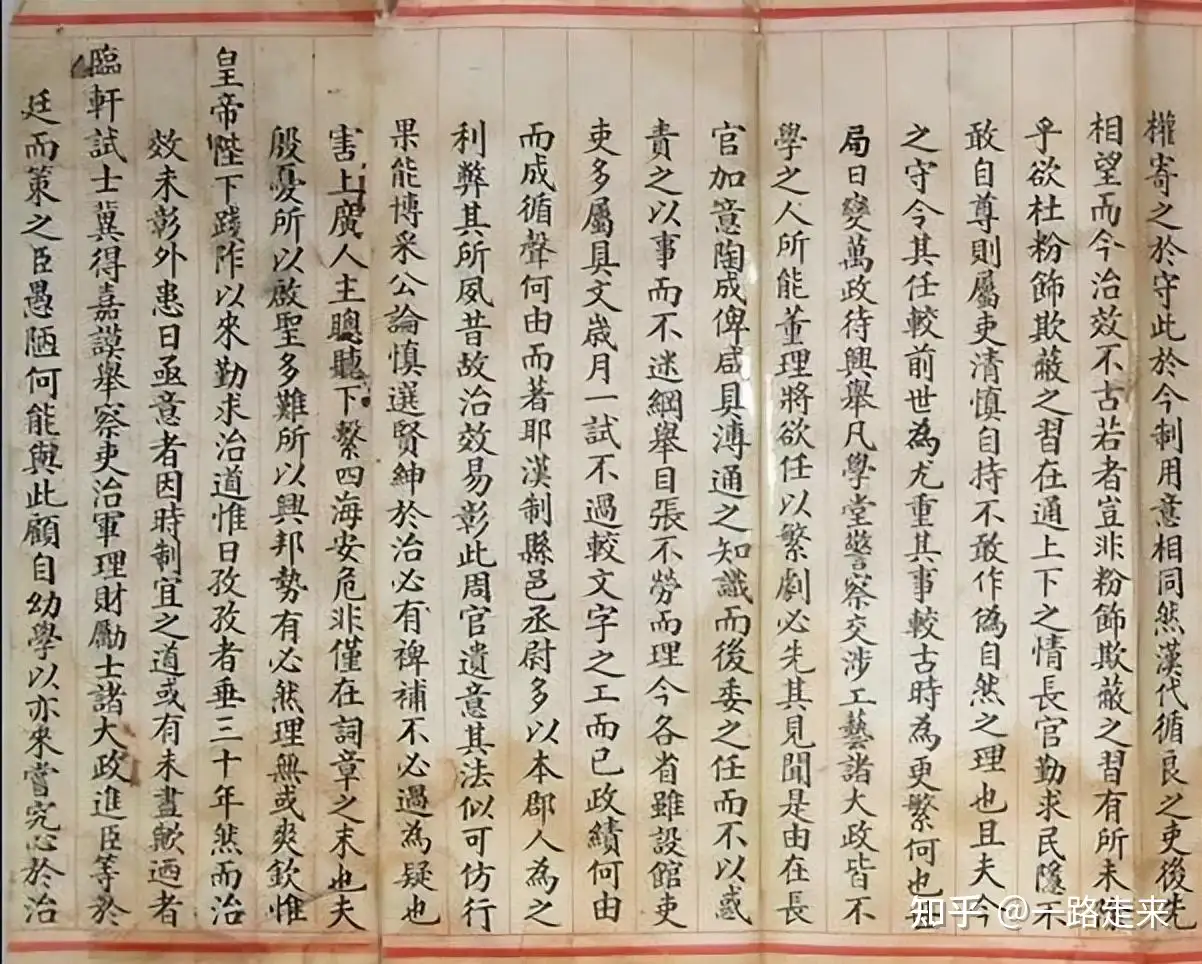 權寄之於守此於今制用意相同然漢代循良之吏後先
相望而今治效不古若者豈非粉飾欺蔽之習有所未除
乎欲杜粉飾欺蔽之習在通上下之情長官勤求民隱不
敢自尊則屬吏清慎自持不敢作偽自然之理也且夫今
之守令其任較前世為尤重其事較古時為更繁何也
局日變萬政待興舉凡學堂警察交涉工藝諸大政皆不
學之人所能董理將欲任以繁劇必先其見聞是由在長
官加意陶成俾咸具溥通之知識而後委之任而不以惑
責之以事而不迷綱舉目張不勞而理今各省雖設館吏
吏多屬具文歲月一試不過較文字之工而已政績何由
而成循聲何由而著耶漢制縣邑丞尉多以本郡人為之
利弊其所夙昔故治效易彰此周官遺意其法似可仿行
果能博采公論慎選賢紳於治必有裨補不必過為疑也
害上廣人主聰聽下繫四海安危非僅在詞章之末也夫
殷憂所以啟聖多難所以興邦勢有必然理無或爽欽惟
皇帝陛下踐阼以來勤求治道惟日孜孜者垂三十年然而治
效未彰外患日亟意者因時制宜之道或有未盡歟迺者
臨軒試士冀得嘉謨舉察吏治軍理財勵士諸大政進臣等於
廷而策之臣愚陋何能與此顧自幼學以亦來嘗究心於治
知乎 @一路走来